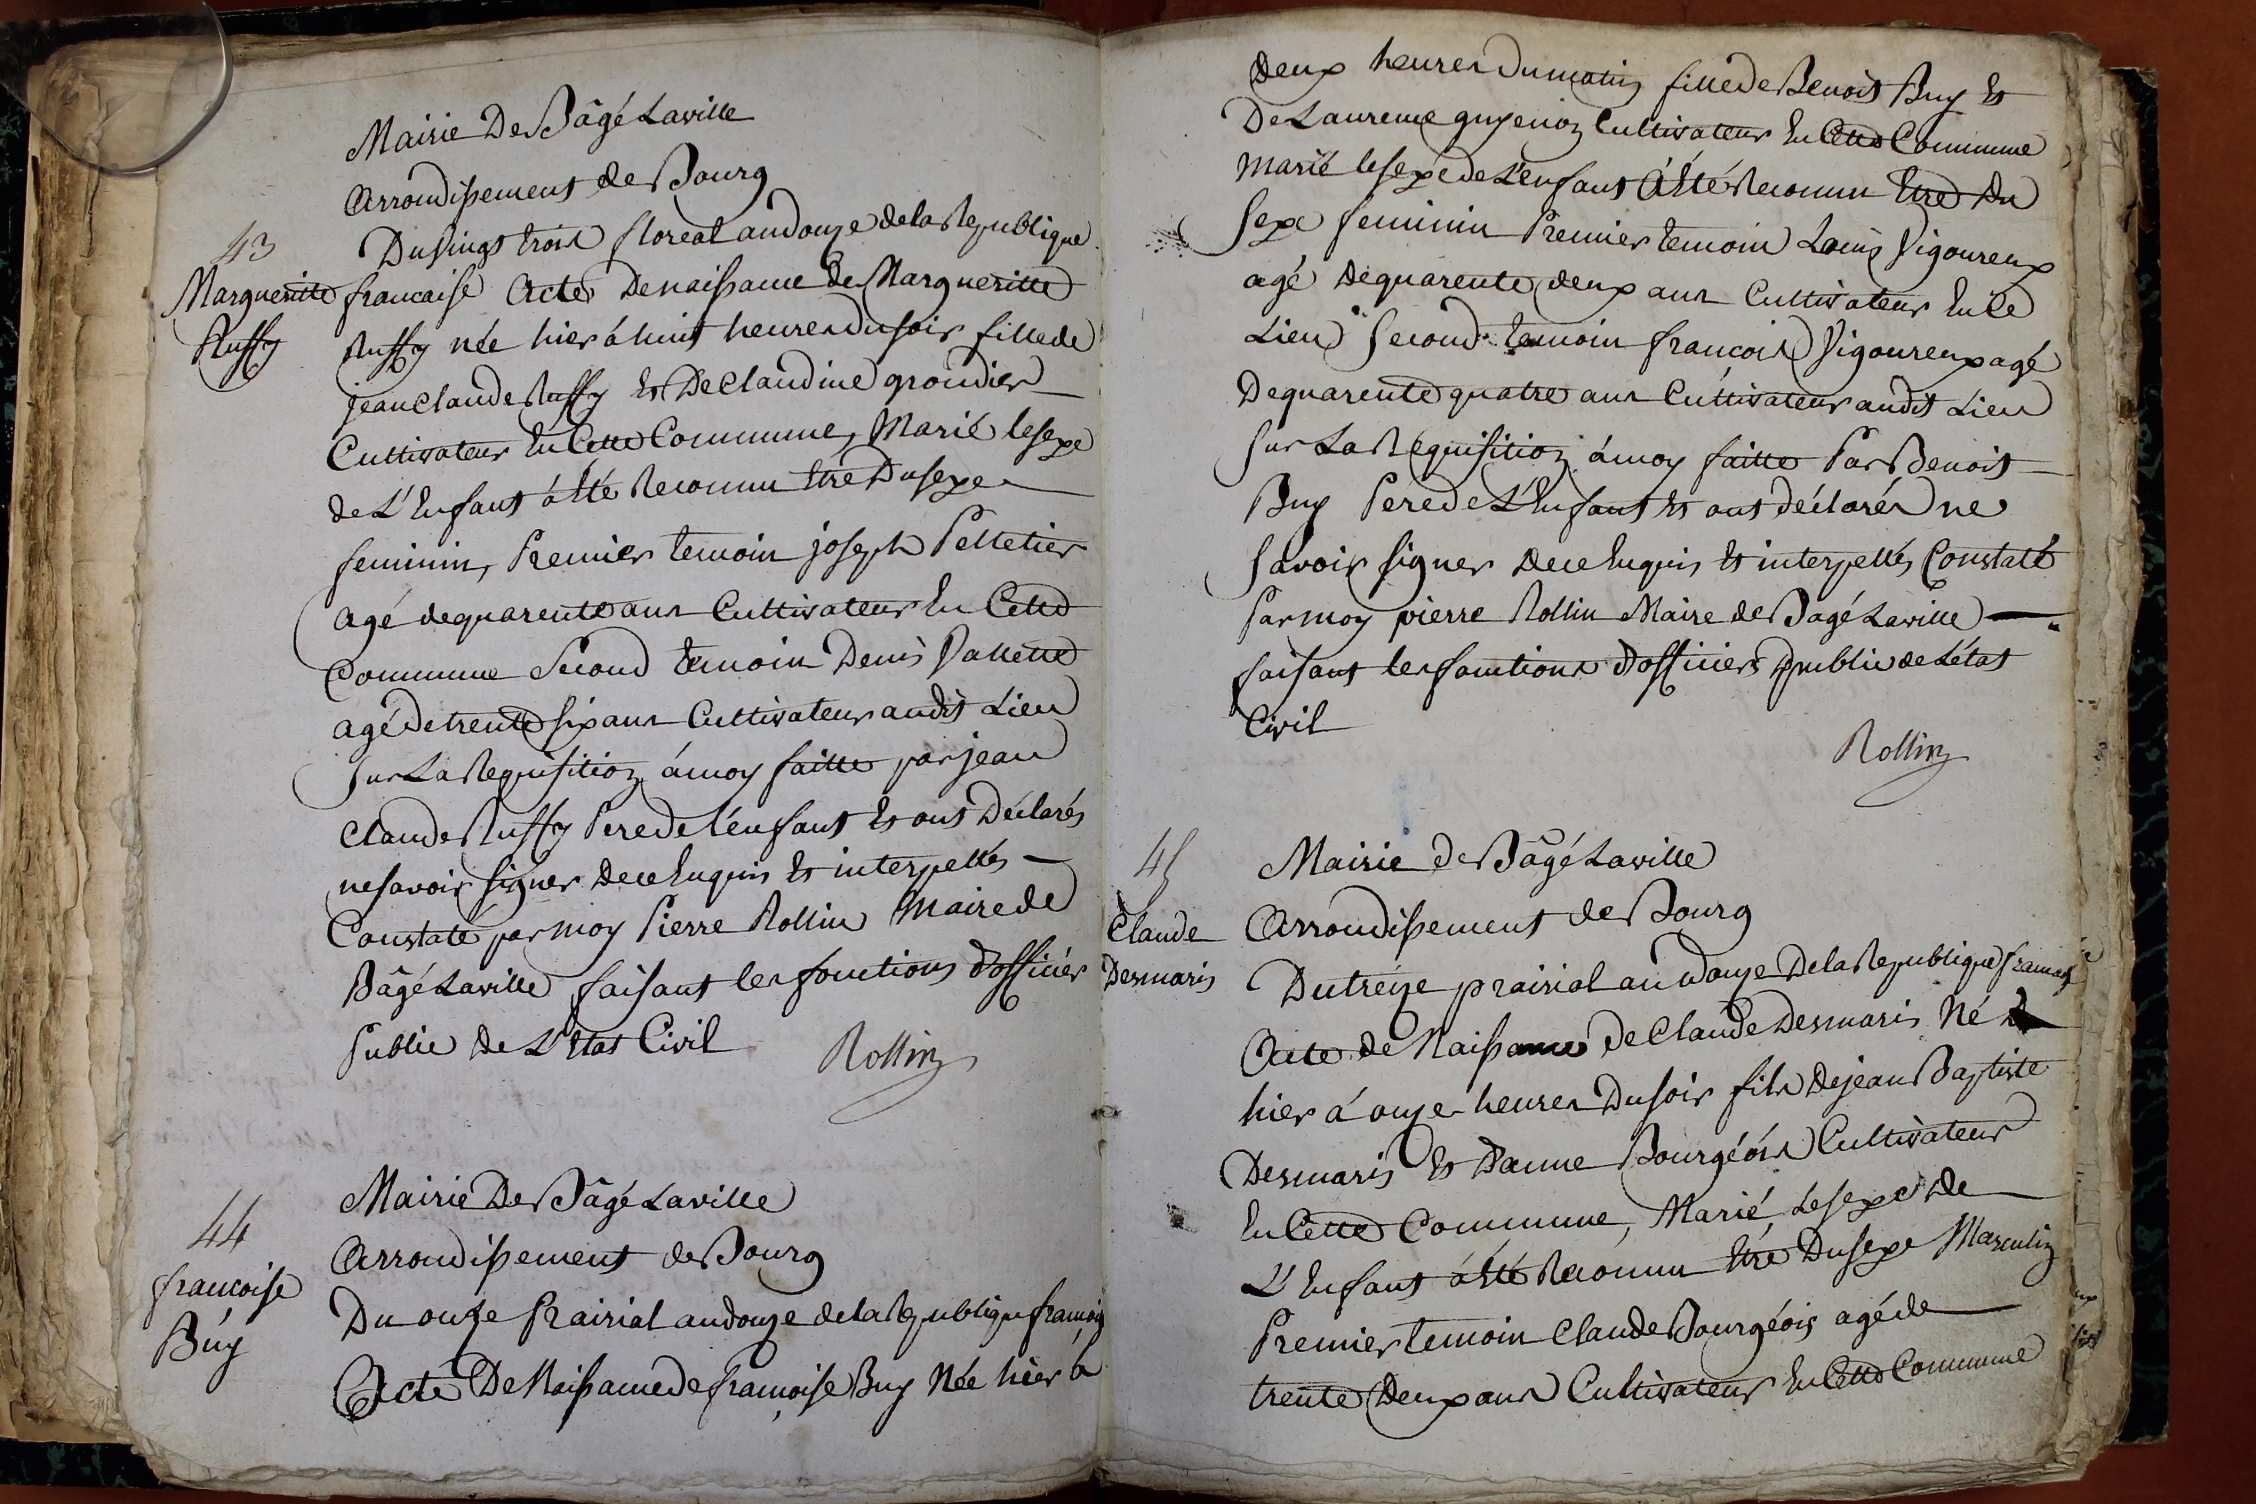 Mairie De Bâgé Laville
Arrondissement de Bourg
43
Du vingt trois floreal an douze de la Republique
Margueritte
francaise Acte De naissance de Margueritte
Ruffy
Ruffy née hier á huit heures du soir fille de
jean Claude Ruffy Et De Claudine grondier
Cultivateur En Cette Commune, Marié le sexe
de L'Enfant á Eté Reconnu Etre Du sexe
feminin, Premier temoin joseph Pelletier
agé de quarente ans Cultivateur En Cette
Commune Second temoin Denis Vallette
agé De trente six ans Cultivateur audit Lieu
sur La Requisition á moy faitte par jean
Claude Ruffy Pere de l'enfant Et ont Déclarés
ne savoir signer De ce Enquis Et interpellés
Constaté par moy Pierre Rollin Maire de
Bâgé Laville faisant les fonctions d'officier
Public de L'Etat Civil
Rollin
44
Mairie De Bâgé Laville
Arrondissement de Bourg
francoise
Buy
Du onze Prairial an douze de la Republique
Acte De Naissance de françoise Buy Née hier á
deux heures Du matin fille de Benoit Buy Et
De Laurence guyenoz Cultivateur En Cette Commune
Marié le sexe de L'enfant A Eté Reconnu Etre Du
sexe feminin Premier temoin Louis Vigoureux
agé De quarente deux ans Cultivateur En Ce
Lieu Second temoin francois Vigoureux agé
De quarente quatre ans Cultivateur audit Lieu
sur La Requisition á moy faitte Par Benoit
Buy Pere de L'Enfant Et ont déclarés ne
savoir signer De ce Enquis Et interpellés Constaté
Par moy pierre Rollin Maire de Bagé Laville
faisant les fonctions d'officier public de L'état
Civil
Rollin
45
Mairie de Bâgé Laville
Claude
Desmaris
Arrondissement de Bourg
Du treize prairial an douze De la Republique
Acte de Naissance de Claude Desmaris Né
hier á onze heures Du soir fils De jean Baptiste
Desmaris Et D'anne Bourgéois Cultivateur
En Cette Commune, Marié, Le sexe de
L'Enfant á Eté Reconnu Etre Du sexe Masculin
Premier temoin Claude Bourgéois agé de
trente Deux ans Cultivateur En Cette Commune